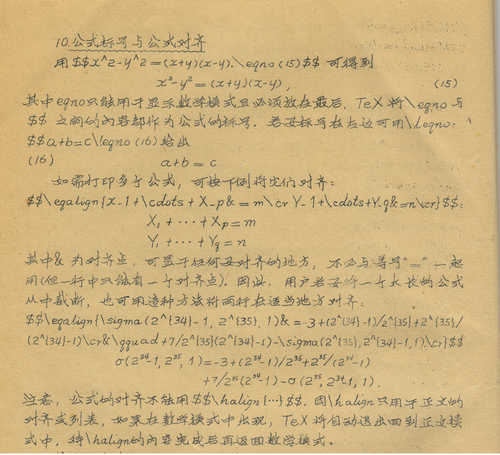 10.公式标号与公式对齐
用$$x^2-y^2=(x+y)(x-y).\eqno(15)$$可得到
x²-y²=(x+y)(x-y), (15)
其中eqno只能用于显示数学模式且必须放在最后, TeX将\eqno与
$$之间的内容都作为公式的标号. 若要标号在左边可用\leqno:
$$a+b=c\leqno(16)给出
(16) a+b=c
如需打印多个公式, 可按下例将它们对齐:
$$\eqalign{x-1+\cdots+X-p&=m\cr Y-1+\cdots+Y-q&=n\cr}$$:
X₁+⋯+Xₚ=m
Y₁+⋯+Y_q=n
其中&为对齐点, 可置于任何要对齐的地方, 不必与等号"="一起
用(但一行中只能有一个对齐点). 因此, 用户若要将一个太长的公式
从中截断, 也可用这种方法将两行在适当地方对齐:
$$\eqalign{\sigma(2^{34}-1,2^{35},1)&=-3+(2^{34}-1)/2^{35}+2^{35}/
(2^{34}-1)\cr&\qquad+7/2^{35}(2^{34}-1)-\sigma(2^{35},2^{34}-1,1)\cr}$$
σ(2³⁴-1,2³⁵,1)=-3+(2³⁴-1)/2³⁵+2³⁵/(2³⁴-1)
+7/2³⁵(2³⁴-1)-σ(2³⁵,2³⁴-1,1).
注意, 公式的对齐不能用$$\halign{⋯}$$. 因\halign只用于正文的
对齐或列表, 如果在数学模式中出现, TeX将自动退出回到正文模
式中, 待\halign的内容完成后再返回数学模式.